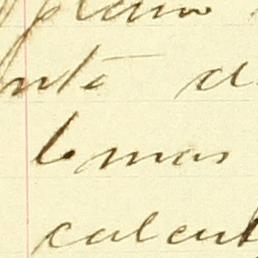 plano
nte d
lomas
calcul